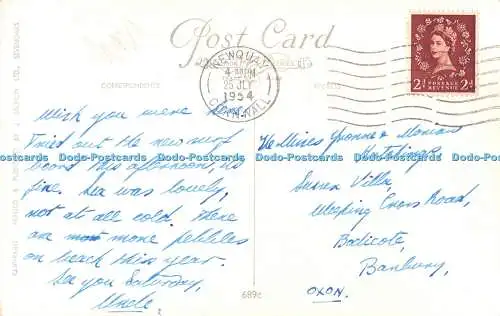 Post Card
CORRESPONDENCE
ADDRESS
NEWQUAY
4-
25 JLY
1954
CORNWALL
POSTAGE
REVENUE
2d 2d
Wish you were here.
Tried out the new surf
board this afternoon, its
fine. Sea was lovely,
not at all cold. There
are more pebbles
on beach this year.
See you Saturday,
Uncle.
The Misses Yvonne &
Sussex Villa,
Weeping Cross Road,
Bodicote,
Banbury,
OXON.
689c
Dodo-Postcards Dodo-Postcards Dodo-Postcards Dodo-Postcards Dodo-Postcards Dodo-Postcards